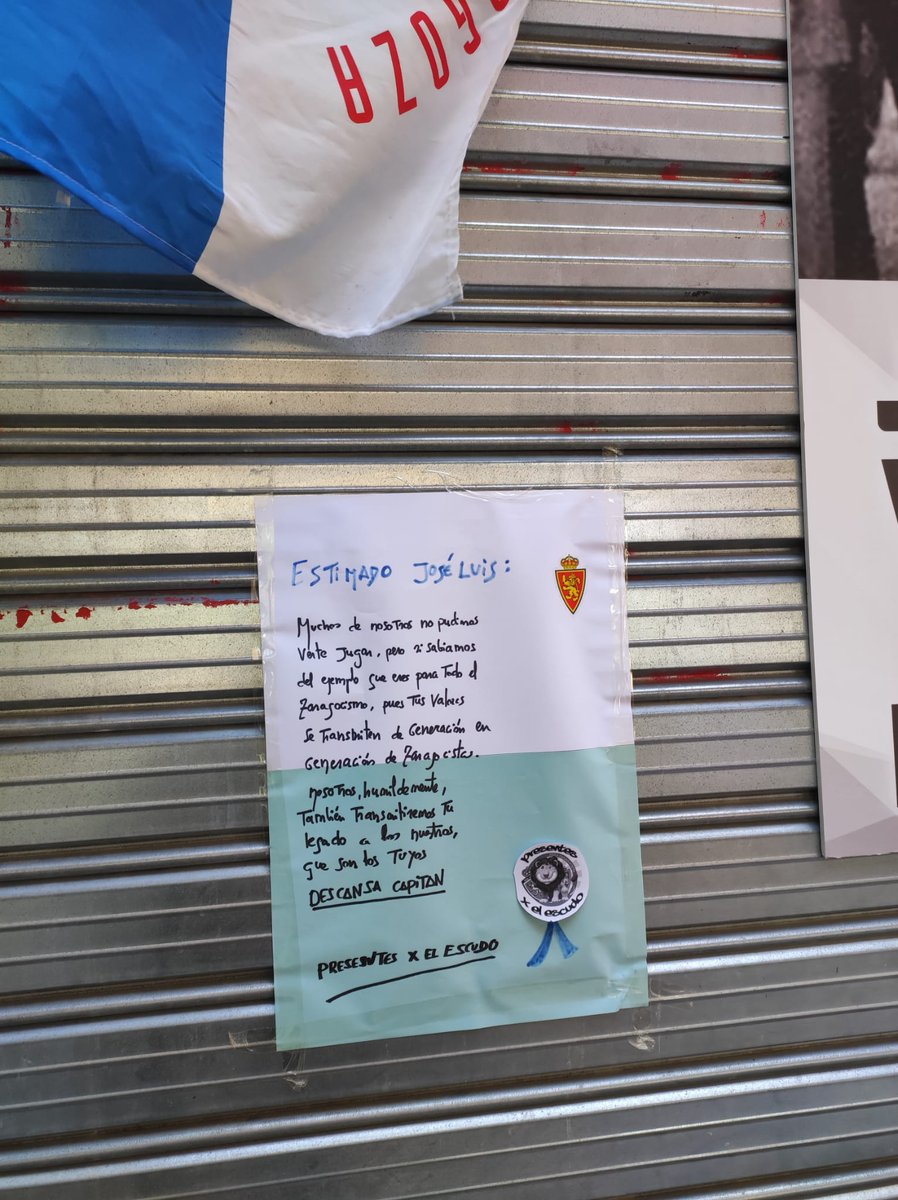 AGOZA
ESTIMADO JOSÉ LUIS:
Muchos de nosotros no pudimos
verte Jugar, pero si sabiamos
del ejemplo que eres para Todo el
Zaragocismo, pues Tus Valores
Se Transmiten de Generación en
Generación de Zaragocistas.
nosotros, humildemente,
También Transmitiremos Tu
legado a los nuestros,
que son los Tuyos
DESCANSA CAPITAN
presentes
x el escudo
PRESENTES X EL ESCUDO